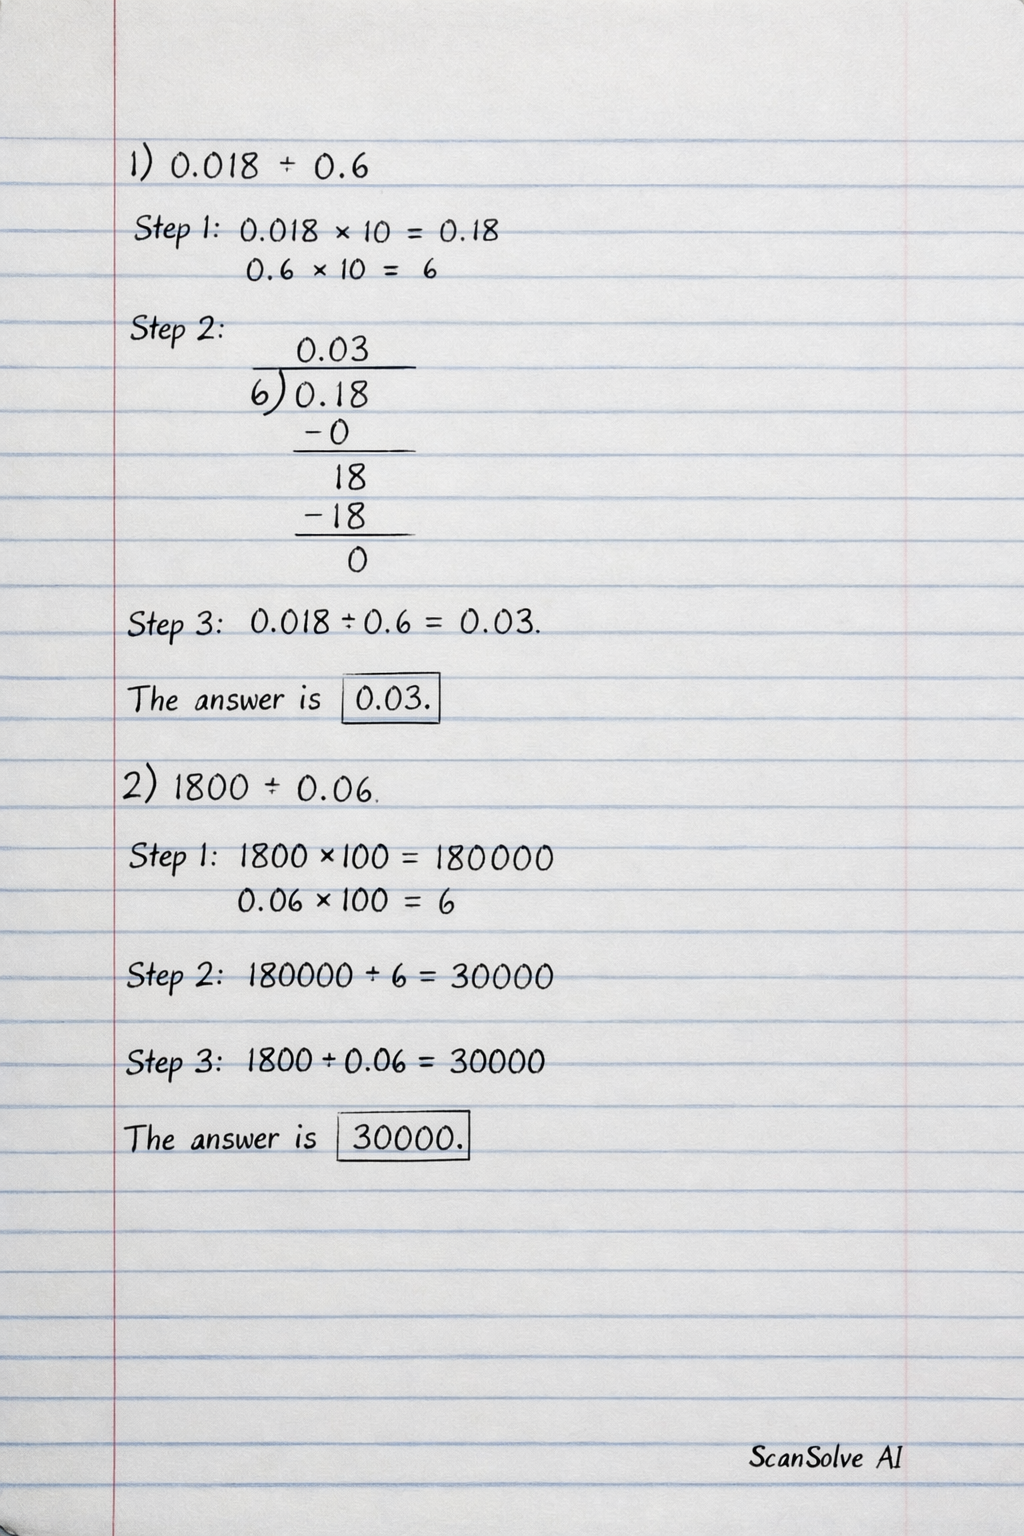 1) 0.018 ÷ 0.6
Step 1: 0.018 × 10 = 0.18
0.6 × 10 = 6
Step 2:
0.03
6)0.18
-0
18
-18
0
Step 3: 0.018 ÷ 0.6 = 0.03.
The answer is 0.03.
2) 1800 ÷ 0.06.
Step 1: 1800 × 100 = 180000
0.06 × 100 = 6
Step 2: 180000 ÷ 6 = 30000
Step 3: 1800 ÷ 0.06 = 30000
The answer is 30000.
ScanSolve AI